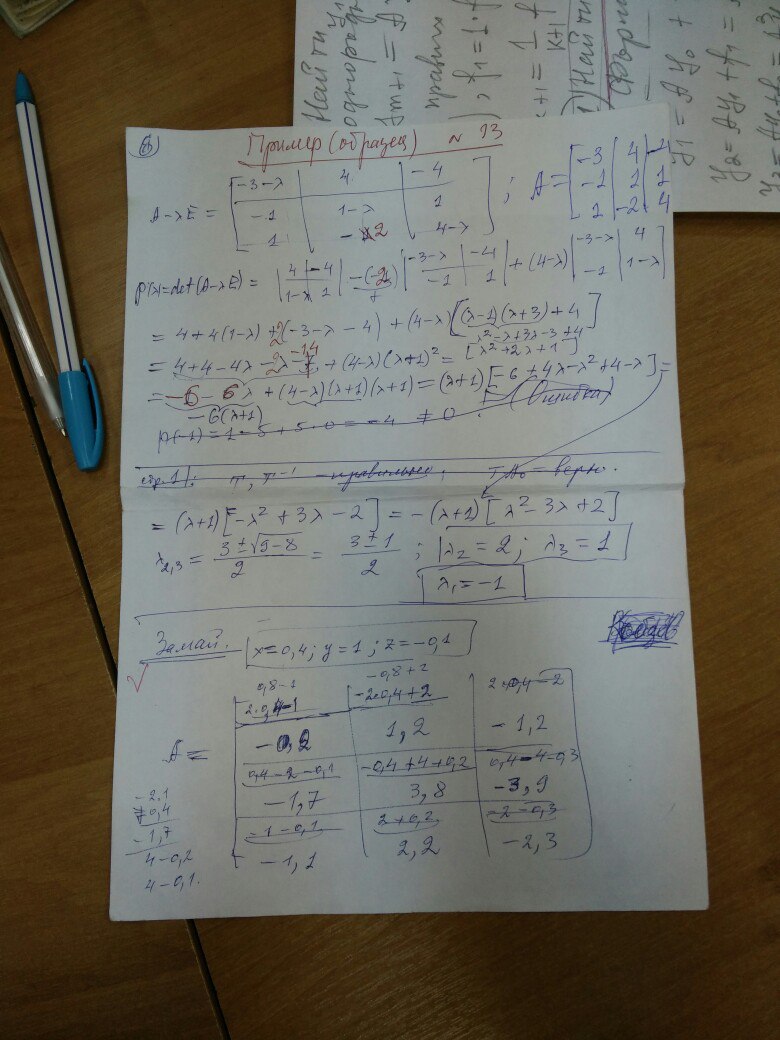 Найти y₁
однородн
ym+1 = A
правил
; f₁ = 1 · f
k+1 = 1 f
k+1
) Найти
Форм
y₁ = A y₀ +
y₂ = A y₁ + f₁ =
6
Пример (образец) N 93
A-λE = [-3-λ | 4 | -4; -1 | 1-λ | 1; 1 | -2 | 4-λ] ; A = [-3 | 4 | -4; -1 | 1 | 1; 1 | -2 | 4]
p(λ) = det(A-λE) = |4 -4; 1-λ 1| -(-2) |-3-λ -4; -1 1| + (4-λ) |-3-λ 4; -1 1-λ|
= 4+4(1-λ) +2(-3-λ-4) + (4-λ) [(λ-1)(λ+3)+4]
λ²-λ+3λ-3+4
= 4+4-4λ -2λ -14 + (4-λ)(λ+1)² = [λ²+2λ+1]
= -6 -6λ + (4-λ)(λ+1)(λ+1) = (λ+1) [-6+4λ-λ²+4-λ] =
-6(λ+1) (Ошибка)
p(-1) = 1-5+5·0 = -4 ≠ 0.
стр. 1/: T, T⁻¹ - правильно; TΛ₀ - верно.
= (λ+1) [-λ²+3λ-2] = -(λ+1) [λ²-3λ+2]
λ₂,₃ = (3±√9-8)/2 = (3±1)/2 ; λ₂ = 2; λ₃ = 1
λ₁ = -1
Замай. x=0,4; y=1; z=-0,1
0,8-1 -0,8+2 2·0,4-2
2·0,4-1 -2·0,4+2
A = -0,2 1,2 -1,2
0,4-2-0,1 -0,4+4+0,2 0,4-4-0,3
-1,7 3,8 -3,9
-1-0,1 2+0,2 -2-0,3
-1,1 2,2 -2,3
-2,1
+0,4
-1,7
4-0,2
4-0,1.